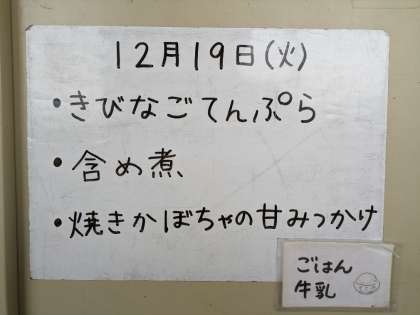 12月19日(火)
・きびなごてんぷら
・含め煮
・焼きかぼちゃの甘みつかけ
ごはん
牛乳